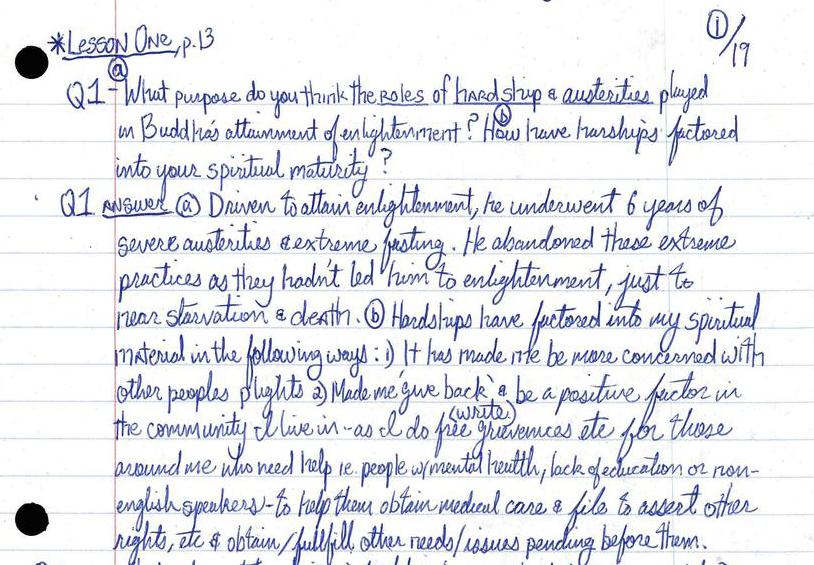 ① /19
*LESSON ONE, p.13
Q1-ⓐ What purpose do you think the ROLES of hARDship & austerities played
in Buddha's attainment of enlightenment? ⓑ How have harships factored
into your spiritual maturity?
Q1 ANSWER ⓐ Driven to attain enlightenment, he underwent 6 years of
severe austerities & extreme fasting. He abandoned these extreme
practices as they hadn't led him to enlightenment, just to
near starvation & death. ⓑ Hardships have factored into my spiritual
material in the following ways: 1) It has made me be more concerned with
other peoples plights 2) Made me 'give back' & be a positive factor in
the community I live in -as I do free (write) grievences etc for those
around me who need help ie. people w/mental health, lack of education or non-
english speakers)-to help them obtain medical care & file to assert other
rights, etc & obtain/fullfill other needs/issues pending before them.